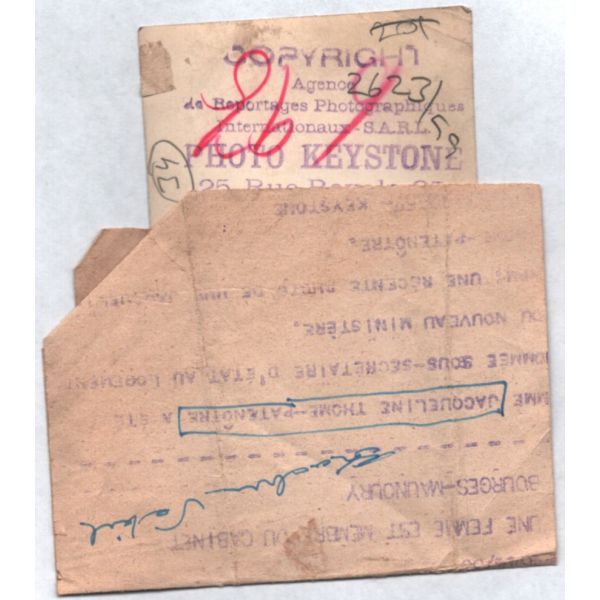 COPYRIGHT
Agence
de Reportages Photographiques
Internationaux-S.A.R.L.
PHOTO KEYSTONE
25, Rue Royale
26231/59
UNE FEMME EST MEMBRE DU CABINET
BOURGES-MAUNOURY
MME JACQUELINE THOME-PATENÔTRE A ÉTÉ
NOMMÉE SOUS-SECRÉTAIRE D'ÉTAT AU LOGEMENT
DU NOUVEAU MINISTÈRE.
UNE RÉCENTE PHOTO DE MME
-PATENÔTRE.
KEYSTONE